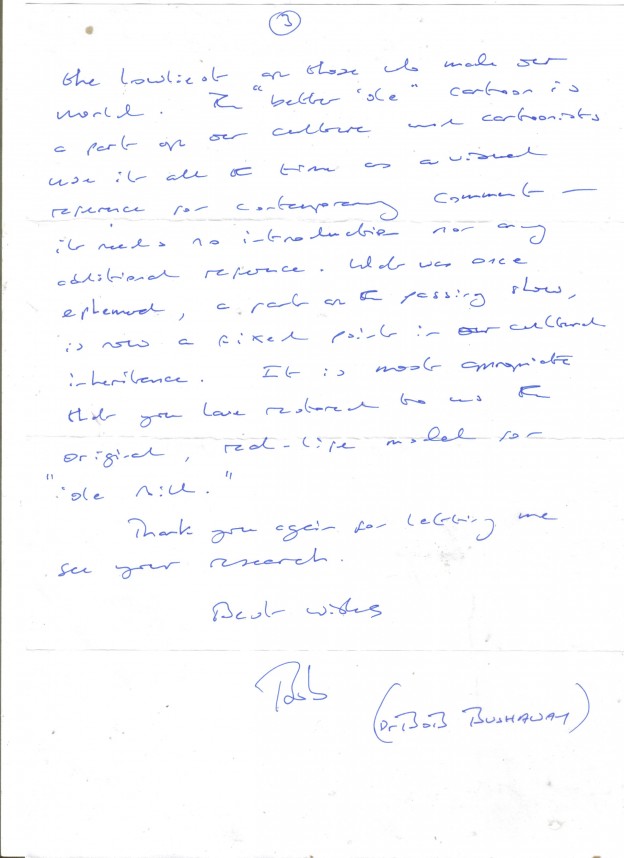 3
the lowliest of those who made our
world. The "better 'ole" cartoon is
a part of our culture and cartoonists
use it all the time as a visual
reference for contemporary comment —
it needs no introduction nor any
additional reference. What was once
ephemeral, a part of the passing show,
is now a fixed point in our cultural
inheritance. It is most appropriate
that you have restored to us the
original, real-life model for
"'ole hill."
Thank you again for letting me
see your research.
Best wishes
Bob
(Dr BOB BUSHAWAY)